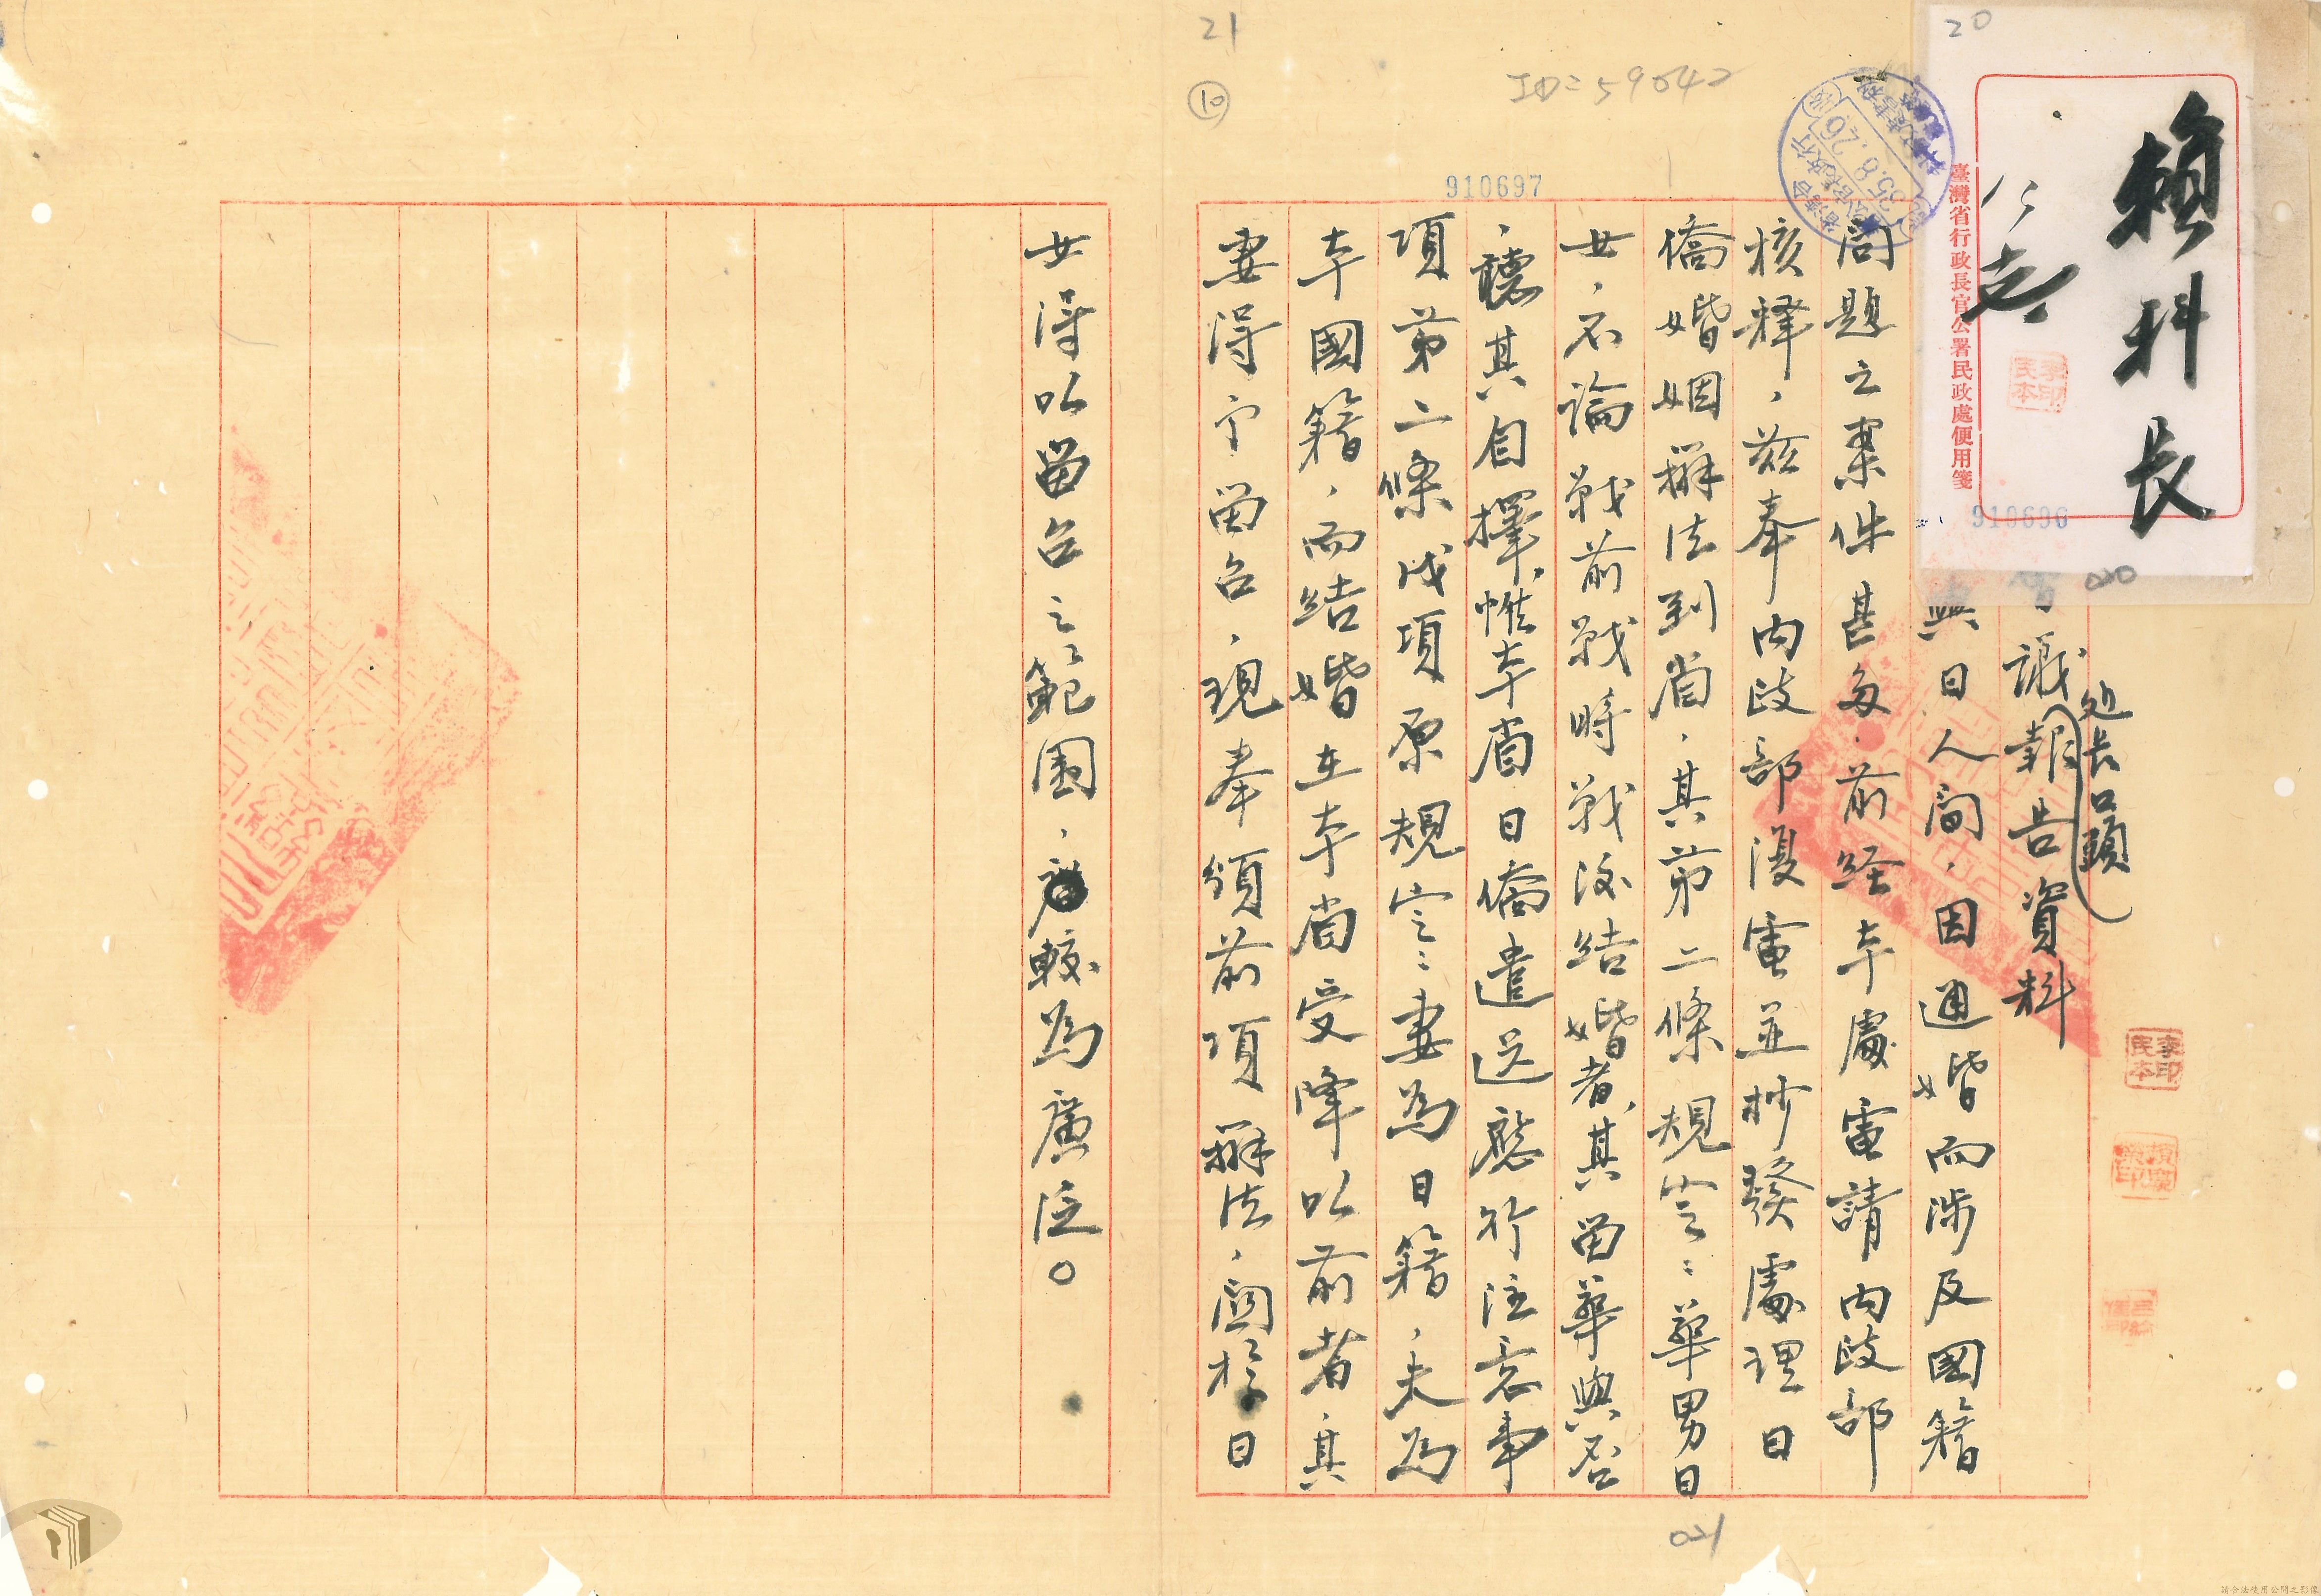 20
賴科長
仁志
臺灣省行政長官公署民政處便用箋
910696
020
處長口頭
議報告資料
與日人間，因通婚而涉及國籍
問題之案件甚多，前經本處電請內政部
核釋，茲奉內政部復電並抄發處理日
僑婚姻辦法到省，其第二條規定：華男日
女，不論戰前戰時戰後結婚者，其留華與否
，聽其自擇，惟本省日僑遣送應行注意事
項第二條戊項原規定：妻為日籍，夫為
本國籍，而結婚在本省受降以前者，其
妻得予留台，現奉頒前項辦法，關於日
女得以留台之範圍，較為廣泛。
21
10
ID=59042
910697
35.8.26
021
李印民本
請合法使用公開之影像